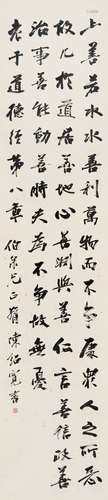 上善若水水善利萬物而不爭處衆人之所惡
故几於道居善地心善淵與善仁言善信政善
治事善能動善時夫為不爭故無憂
老子道德經第八章 陳紹寬書